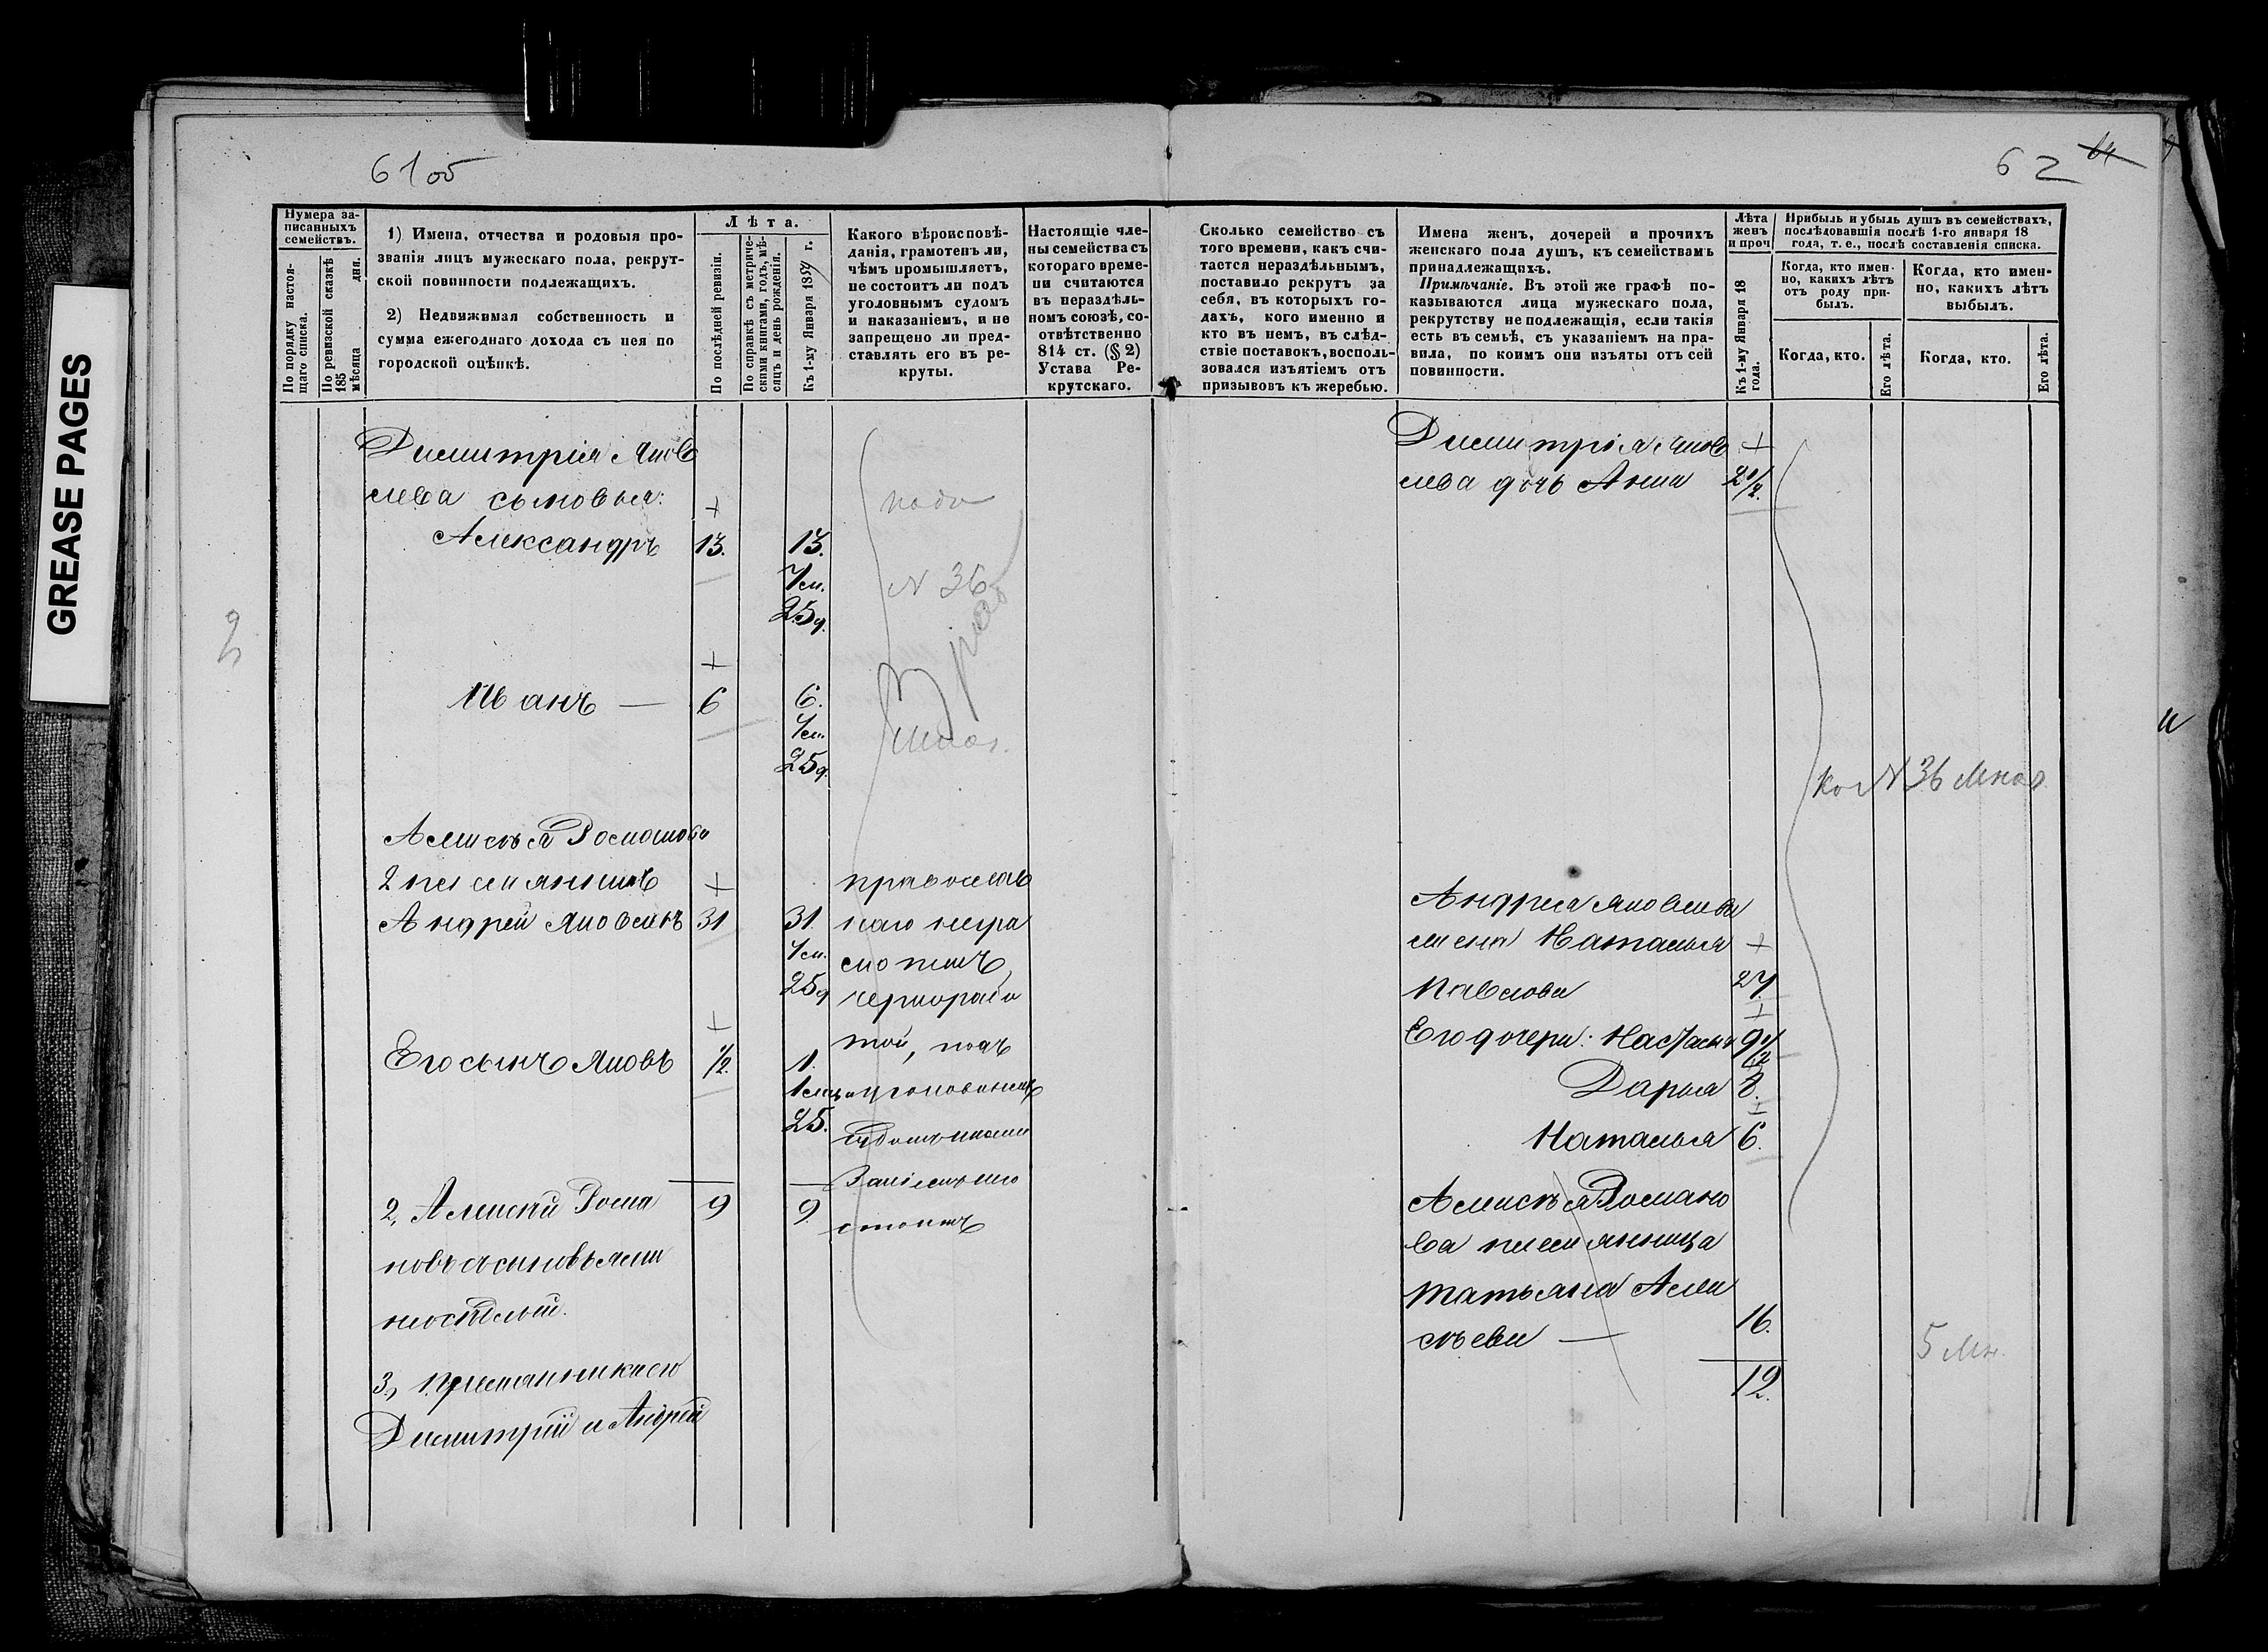 61об
62 64
GREASE PAGES
Нумера за-
писанныхъ
семействъ.
По порядку настоя-
щаго списка.
По ревизской сказкѣ
185
мѣсяца дня.
1) Имена, отчества и родовыя про-
званія лицъ мужескаго пола, рекрут-
ской повинности подлежащихъ.
2) Недвижимая собственность и
сумма ежегоднаго дохода съ нея по
городской оцѣнкѣ.
Лѣта.
По послѣдней ревизіи.
По справкѣ съ метриче-
скими книгами, годъ, мѣ-
сяцъ и день рожденія.
Къ 1-му Января 1859 г.
Какого вѣроисповѣ-
данія, грамотенъ ли,
чѣмъ промышляетъ,
не состоитъ ли подъ
уголовнымъ судомъ
и наказаніемъ, и не
запрещено ли пред-
ставлять его въ ре-
круты.
Настоящіе чле-
ны семейства съ
котораго време-
ни считаются
въ нераздѣль-
номъ союзѣ, со-
отвѣтственно
814 ст. (§ 2)
Устава Ре-
крутскаго.
Сколько семейство съ
того времени, какъ счи-
тается нераздѣльнымъ,
поставило рекрутъ за
себя, въ которыхъ го-
дахъ, кого именно и
кто въ немъ, въ слѣд-
ствіе поставокъ, восполь-
зовался изъятіемъ отъ
призывовъ къ жеребью.
Имена женъ, дочерей и прочихъ
женскаго пола душъ, къ семействамъ
принадлежащихъ.
Примѣчаніе. Въ этой же графѣ по-
казываются лица мужескаго пола,
рекрутству не подлежащія, если такія
есть въ семьѣ, съ указаніемъ на пра-
вила, по коимъ они изъяты отъ сей
повинности.
Лѣта
женъ
и проч
Къ 1-му Января 18
года.
Прибыль и убыль душъ въ семействахъ,
послѣдовавшія послѣ 1-го января 18
года, т. е., послѣ составленія списка.
Когда, кто имен-
но, какихъ лѣтъ
отъ роду при-
былъ.
Когда, кто имен-
но, какихъ лѣтъ
выбылъ.
Когда, кто.
Его лѣта.
Когда, кто.
Его лѣта.
Димитрія Яков
лева сыновья:
Александръ 13. 13.
7 м.
25 д.
N 36
Иванъ — 6 6.
7 м.
25 д.
Алексѣя Романова
2 племянникъ
Андрей Яковлевъ 31 31.
7 м.
25 д
православ
наго негра
мотенъ,
чернорабо
той, подъ
Его сынъ Яковъ 1/2. 1.
1 м.
25.
уголовнымъ
судомъ
не
стоитъ
2, Алексѣй Рома 9 9.
новъ съ сыновьями
3, племянники его
Димитрій и Андрей
Димитрія Яков
лева дочь Анна 2 1/2.
Ко N 36
Андрея Яковлева
жена Наталья
Павлова 27.
Его дочери: Настасья 9 1/2
Дарья 8.
Наталья 6.
Алексѣя Романо
ва племянница
Татьяна Алек
сѣева — 16.
12.